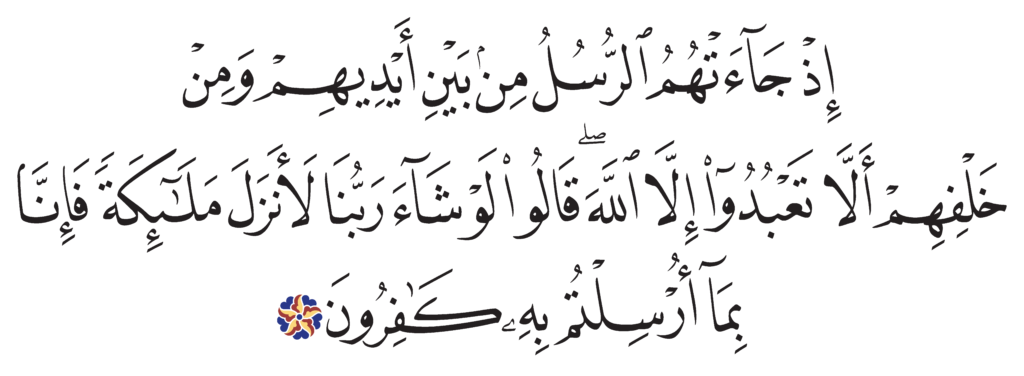 إِذْ جَآءَتْهُمُ ٱلرُّسُلُ مِنۢ بَيْنِ أَيْدِيهِمْ وَمِنْ
خَلْفِهِمْ أَلَّا تَعْبُدُوٓا۟ إِلَّا ٱللَّهَ ۖ قَالُوا۟ لَوْ شَآءَ رَبُّنَا لَأَنزَلَ مَلَـٰٓئِكَةً فَإِنَّا
بِمَآ أُرْسِلْتُم بِهِۦ كَـٰفِرُونَ